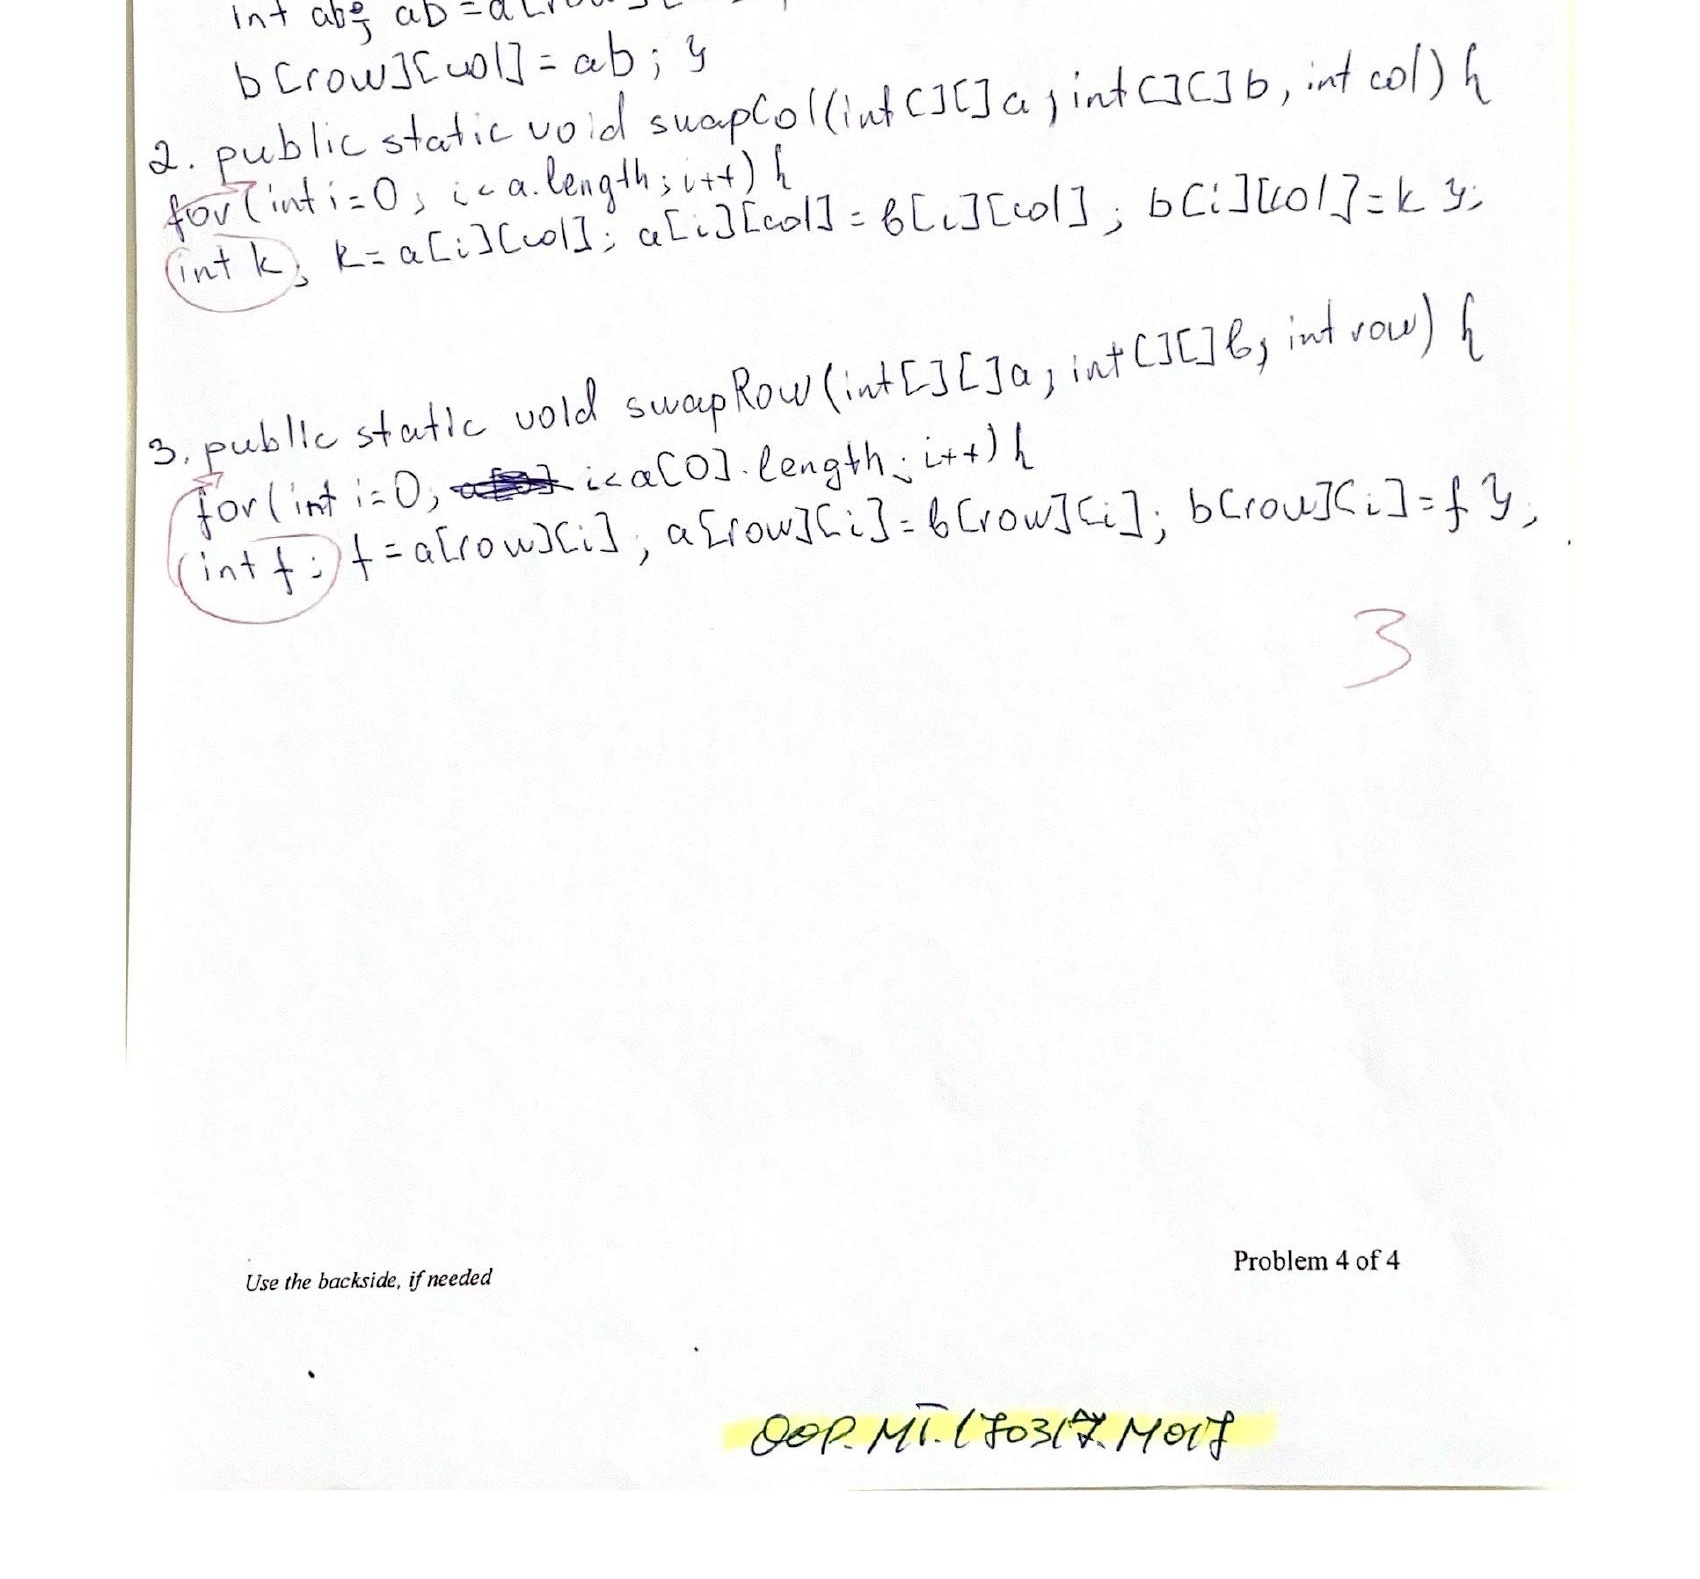 int ab; ab = a[row][
b[row][col] = ab; }
2. public static void swapCol(int[][] a, int[][] b, int col) {
for (int i = 0; i < a.length; i++) {
int k; k = a[i][col]; a[i][col] = b[i][col]; b[i][col] = k };
3. public static void swapRow(int[][] a, int[][] b, int row) {
for (int i = 0; i < a[0].length; i++) {
int f; f = a[row][i]; a[row][i] = b[row][i]; b[row][i] = f };
3
Problem 4 of 4
Use the backside, if needed
OOP.MT.